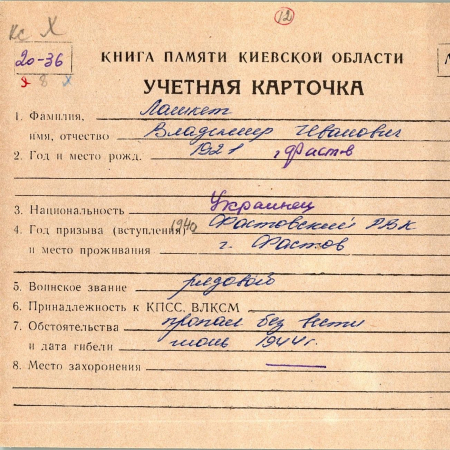 12
Кс Х
20-36
я 8 х
КНИГА ПАМЯТИ КИЕВСКОЙ ОБЛАСТИ
УЧЕТНАЯ КАРТОЧКА
1. Фамилия,
имя, отчество Владимир Иванович
2. Год и место рожд. 1921 г. Фастов
3. Национальность Украинец
4. Год призыва (вступления) 1940 Фастовский РВК
и место проживания г. Фастов
5. Воинское звание рядовой
6. Принадлежность к КПСС, ВЛКСМ
7. Обстоятельства пропал без вести
и дата гибели 1944г.
8. Место захоронения